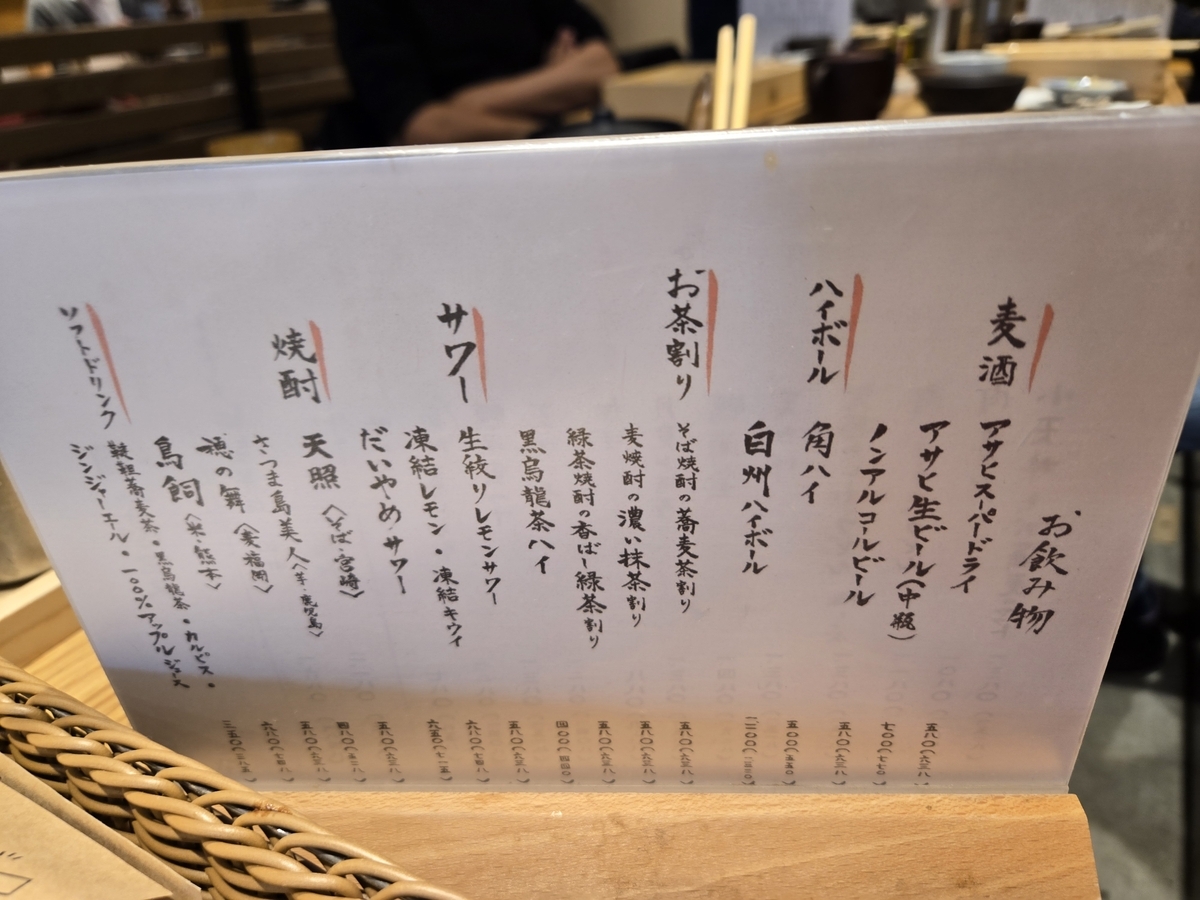 お飲み物
麦酒
アサヒスーパードライ 五八〇(六三八)
アサヒ生ビール(中瓶) 七〇〇(七七〇)
ノンアルコールビール 五八〇(六三八)
ハイボール
角ハイ 五〇〇(五五〇)
白州ハイボール 一二〇〇(一三二〇)
お茶割り
そば焼酎の蕎麦茶割り 五八〇(六三八)
麦焼酎の濃い抹茶割り 五八〇(六三八)
緑茶焼酎の香ばし緑茶割り 五八〇(六三八)
黒烏龍茶ハイ 四〇〇(四四〇)
サワー
生絞りレモンサワー 五八〇(六三八)
凍結レモン・凍結キウイ 六八〇(七四八)
だいやめサワー 六五〇(七一五)
焼酎
天照〈そば・宮崎〉 五八〇(六三八)
さつま島美人〈芋・鹿児島〉 四八〇(五二八)
穂の舞〈麦・福岡〉 五八〇(六三八)
鳥飼〈米・熊本〉 六八〇(七四八)
ソフトドリンク
韃靼蕎麦茶・黒烏龍茶・カルピス・ 三五〇(三八五)
ジンジャーエール・一〇〇%アップルジュース